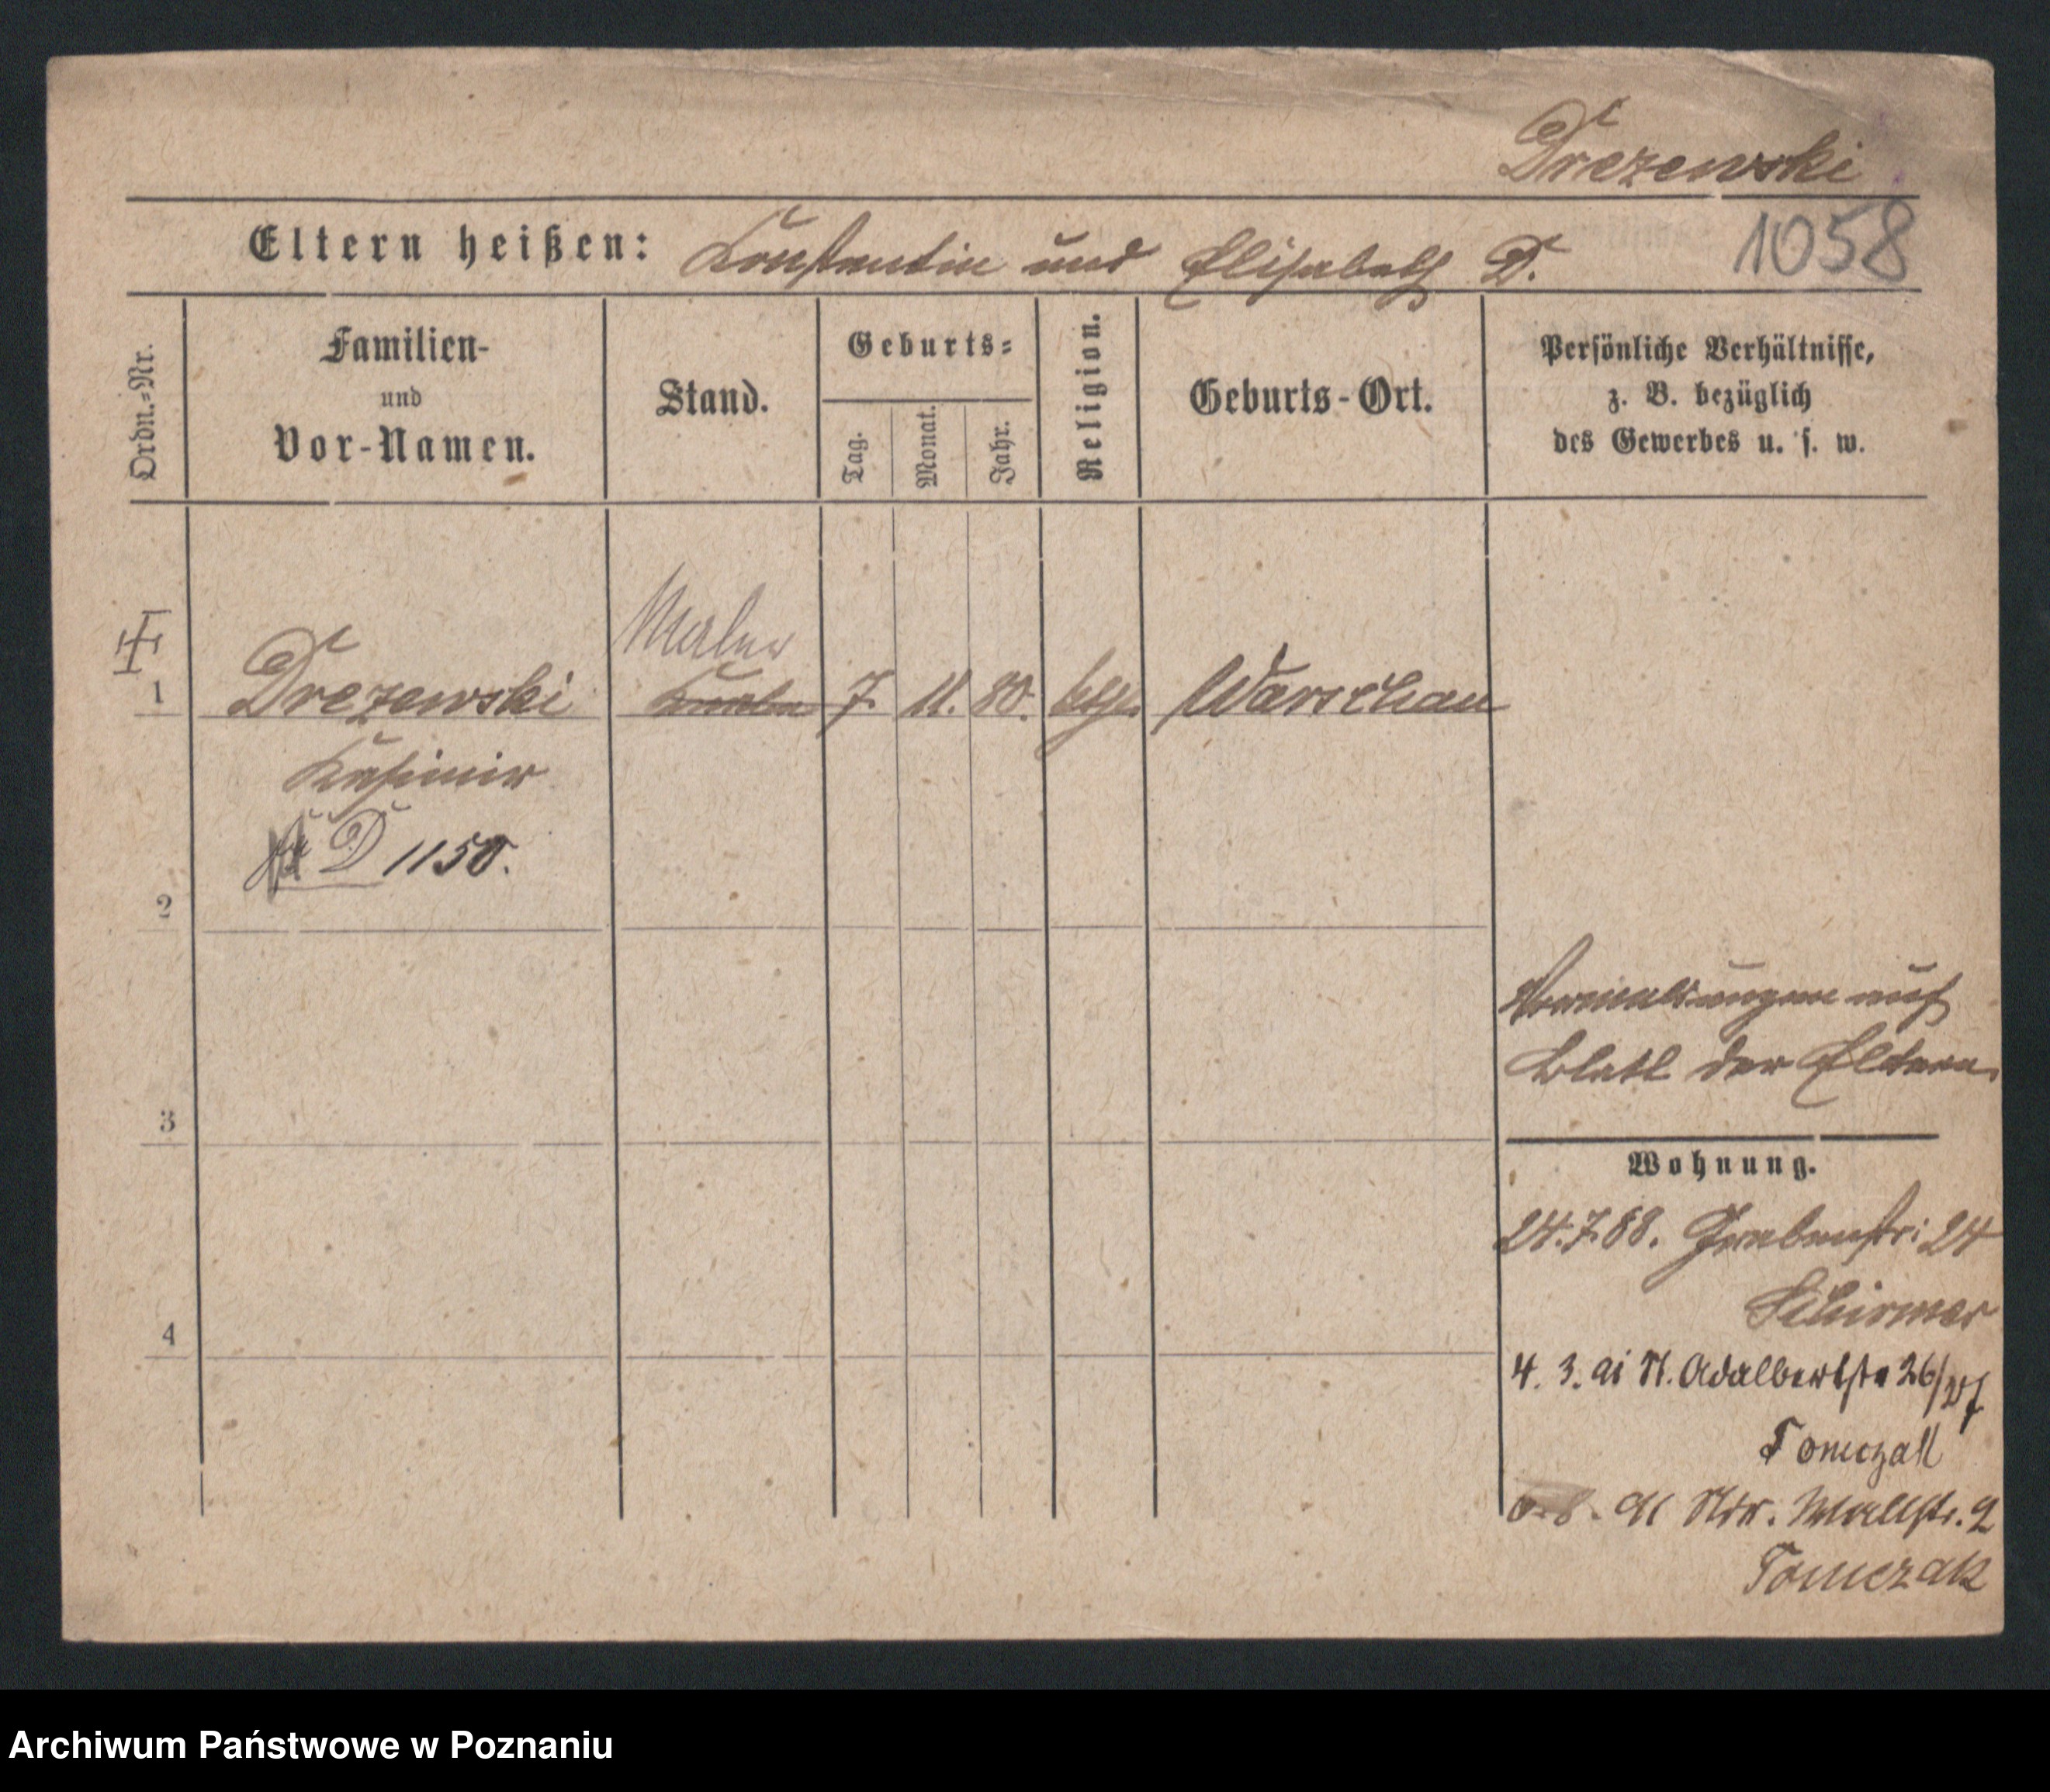 Drezewski
Eltern heißen: Konstantin und Elisabeth D.
1058
Ordn.-Nr.
Familien-
und
Vor-Namen.
Stand.
Geburts-
Tag.
Monat.
Jahr.
Religion.
Geburts-Ort.
Persönliche Verhältnisse,
z. B. bezüglich
des Gewerbes u. s. w.
Maler
1 Drezewski Knabe 7. 11. 80. kth. Warschau
Kasimir
D 1150.
2
auf
Blatt der Eltern
3
Wohnung.
24.7.88. Grabenstr: 24
Schirmer
4
4. 3. 91 St. Adalbertstr 26/27
Tomczak
8. 91 Wallstr. 2
Tomczak
Archiwum Państwowe w Poznaniu